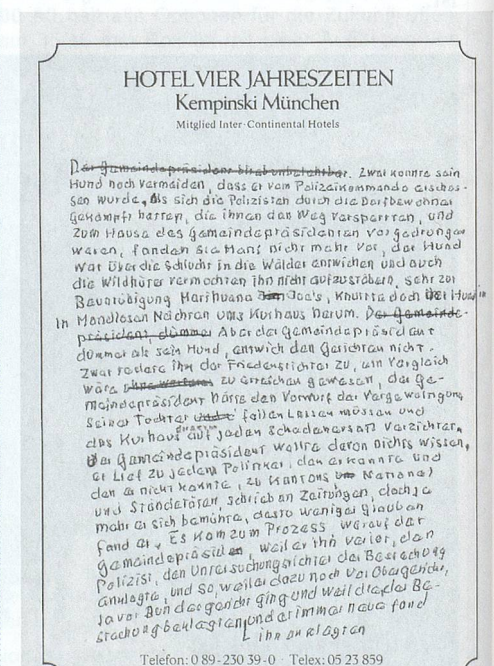 HOTEL VIER JAHRESZEITEN
Kempinski München
Mitglied Inter-Continental Hotels
Der Gemeindepräsident blieb unbelehrbar. Zwar konnte sein
Hund noch vermeiden, dass er vom Polizeikommando erschos-
sen wurde. Als sich die Polizisten durch die Dorfbewohner
gekämpft hatten, die ihnen den Weg versperrten, und
zum Hause des Gemeindepräsidenten vorgedrungen
waren, fanden sie Mani nicht mehr vor, der Hund
war über die Schlucht in die Wälder entwichen und auch
die Wildhüter vermochten ihn nicht aufzustöbern, sehr zur
Beunruhigung Marihuana Joe's, knurrte doch der Hund in
In mondlosen Nächten ums Kurhaus herum. Der Gemeinde-
präsident, dümmer Aber der Gemeindepräsident
dümmer als sein Hund, entwich den Gerichten nicht.
Zwar redete ihm der Friedensrichter zu, ein Vergleich
wäre ohne weiteres zu erreichen gewesen, der Ge-
meindepräsident hätte den Vorwurf der Vergewaltigung
seiner Tochter fallen lassen müssen und
das Kurhaus auf jeden Schadenersatz verzichten.
Der Gemeindepräsident wollte davon nichts wissen,
er lief zu jedem Politiker, den er kannte und
den er nicht kannte, zu Kantons National
und Ständeräten, schrieb an Zeitungen, doch je
mehr er sich bemühte, desto weniger Glauben
fand er. Es kam zum Prozess worauf der
Gemeindepräsident, weil er ihn verlor, den
Polizist, den Untersuchungsrichter der Bestechung
anklagte, und so, weil er dazu noch vor Obergericht,
ja vor Bundesgericht ging und weil er der Be-
stechung beklagten und er immer neue fand
ihn anklagten
Telefon: 0 89-230 39-0 · Telex: 05 23 859